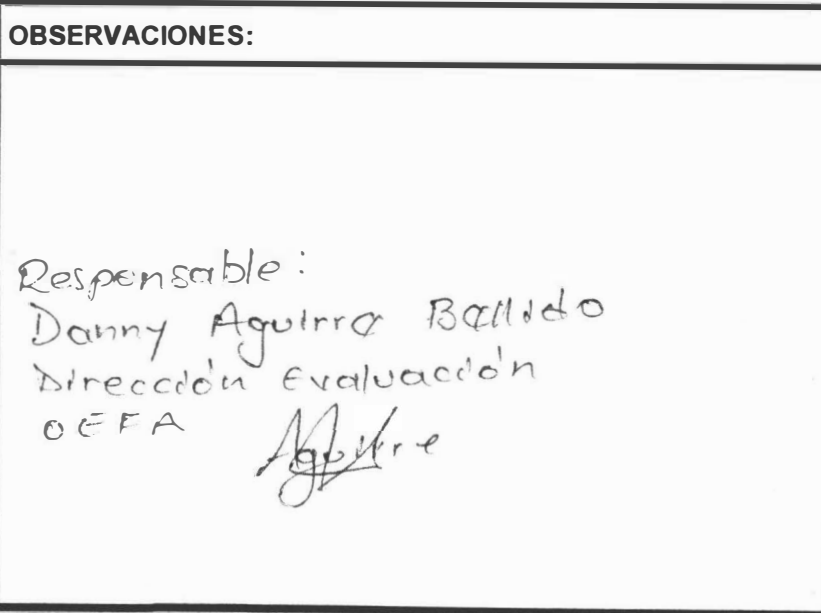 OBSERVACIONES:
Responsable:
Danny Aguirre Ballido
Dirección Evaluación
OEFA
Aguirre